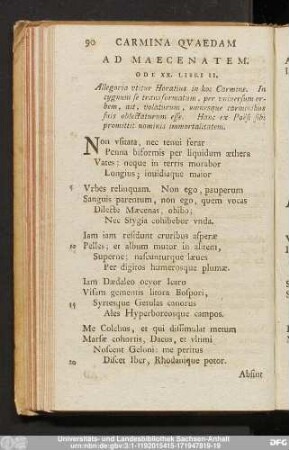 90 CARMINA QVAEDAM
AD MAECENATEM.
ODE XX. LIBRI II.
Allegoria vtitur Horatius in hoc Carmine. In
cygnum se transformatum, per vniuersum or-
bem, ait, volaturum, omnesque carminibus
suis oblectaturum esse. Hanc ex Poësi sibi
promittit nominis immortalitatem.
Non vsitata, nec tenui ferar
Penna biformis per liquidum æthera
Vates: neque in terris morabor
Longius; inuidiaque maior
5 Vrbes relinquam. Non ego, pauperum
Sanguis parentum, non ego, quem vocas
Dilecte Mæcenas, obibo;
Nec Stygia cohibebor vnda.
Iam iam residunt cruribus asperæ
10 Pelles; et album mutor in alitem,
Superne; nascunturque læues
Per digitos humerosque plumæ.
Iam Dædaleo ocyor Icaro
Visam gementis litora Bospori,
15 Syrtesque Getulas canorus
Ales Hyperboreosque campos.
Me Colchus, et qui dissimulat metum
Marsæ cohortis, Dacus, et vltimi
Noscent Geloni: me peritus
20 Discet Iber, Rhodanique potor.
Absint
Universitäts- und Landesbibliothek Sachsen-Anhalt
urn:nbn:de:gbv:3:1-1192015415-171947819-19
DFG